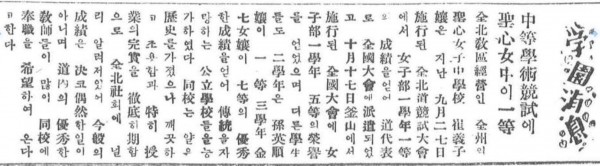 學園消息
中等學術競試에
聖心女中이一等
全北敎區經營인 全州의
聖心女子中學校 崔義子
孃은 지난 九月二七日
施行된 全北道競試大會
에서 女子部一學年一等
으로 入賞하여 道代表
로 全國大會에 派遣되였
고 十月十七日 釜山에서
施行된 全國大會에 女
子部一學年 五等의榮譽
를 얻었으며 다른學生
들도 二學年은 孫英順
孃이 一等 三學年 金
七女孃이 七等의優秀
한成績을얻어 傳統을자
랑하는 公立學校들을능
가하였다 同校는 얕은
歷史를가졌으나 깨끗하
고 조용함과 特히 授
業의完實을 徹底히期함
으로 全北社會에 널
리 알려저있어 今般의
成績은 決코偶然한일이
아니며 道內의優秀한
敎師들이 많이 同校에
奉職을 希望하여 온다
고한다